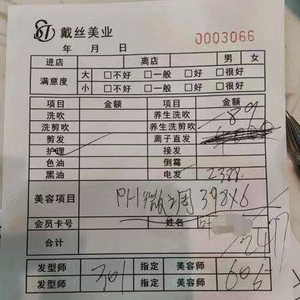 戴丝美业
年 月 日 0003066
进店 离店 男 女
满意度 大 □不好 □一般 □好 □很好
小 □不好 □一般 □好 □很好
项目 金额 项目 金额
洗吹 养生洗吹 89
洗剪吹 养生洗剪吹
剪发 离子直发
护理 接发
色油 倒霉
黑油 电发
美容项目 PH 398X6
会员卡号 姓名
合计
发型师 701 指定 美容师 605
发型师 指定 美容师